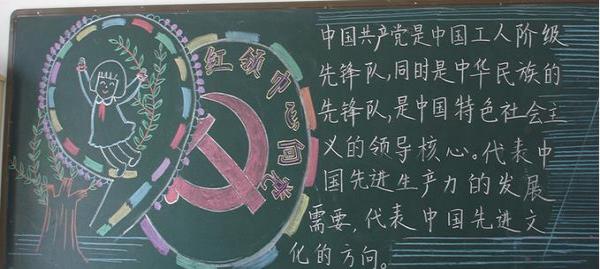 红领巾心向党
中国共产党是中国工人阶级
先锋队,同时是中华民族的
先锋队,是中国特色社会主
义的领导核心。代表中
国先进生产力的发展
需要,代表中国先进文
化的方向。